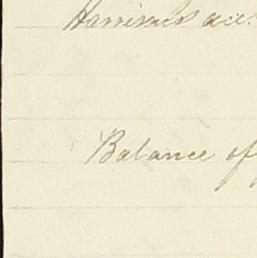 Harrison's acc.
Balance of